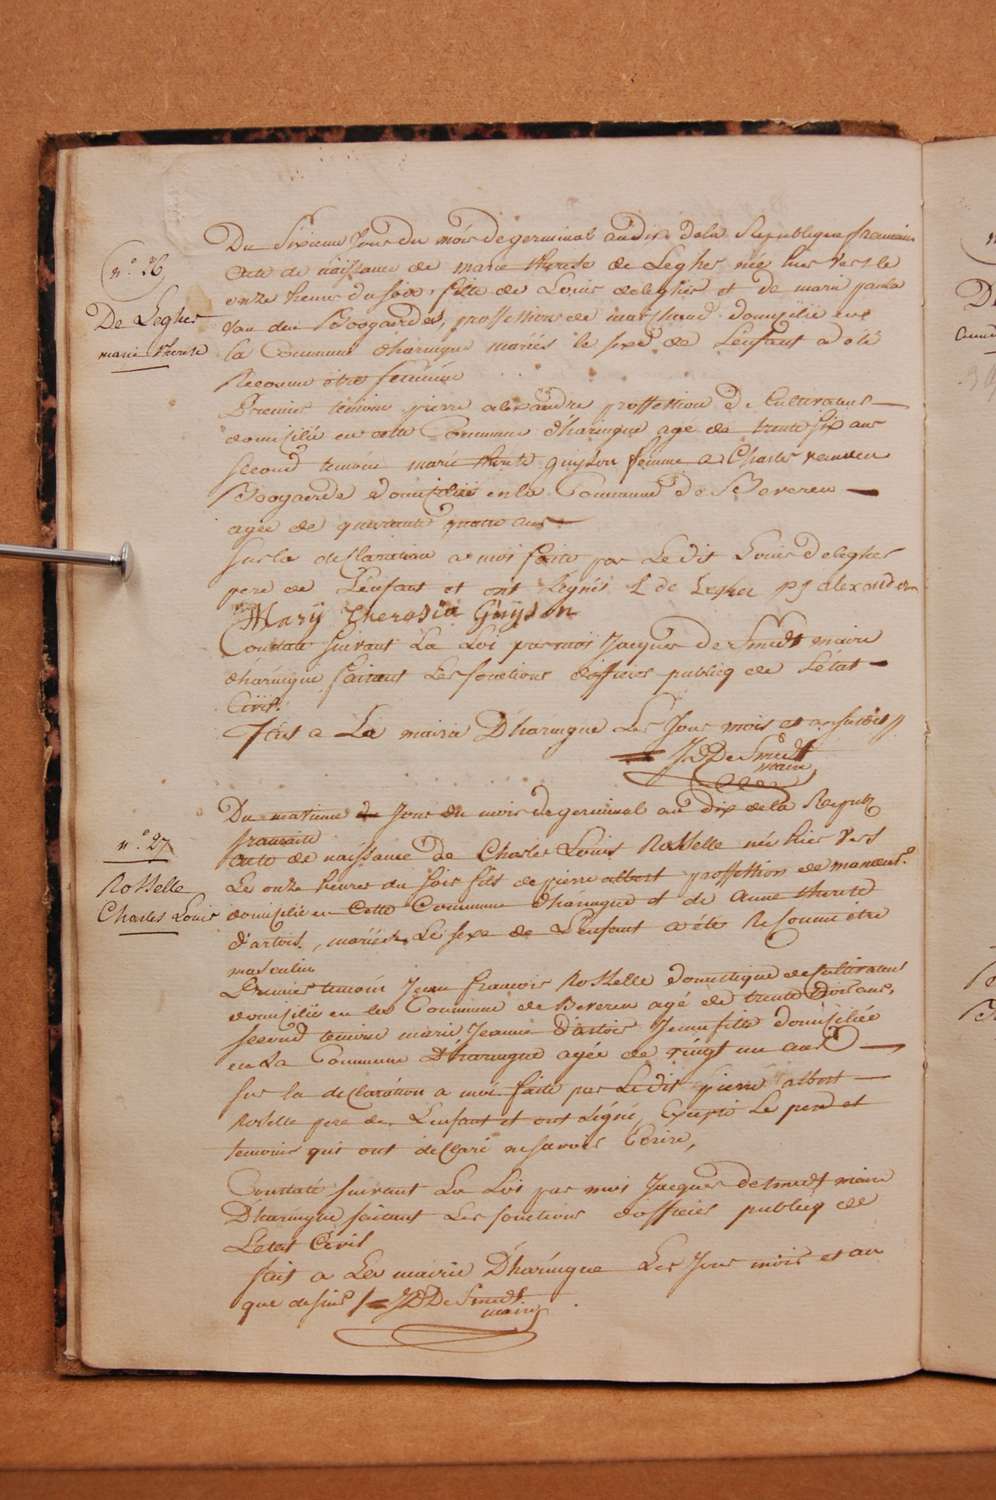 Du Sixieme Jour du mois de germinal an dix de la Republique francaise
n.° 26,
acte de naissance de marie therese de Legher née hier vers le
De Legher
marie Therese
onze heures du soir, fille de Louis delegher et de marie
van den Boogaerde, proffession de marchand domiciliée en
la Commune d'haringue mariés le sexe de L'enfant a été
Reconnu être feminin
Premier temoin pierre alexandre proffession de Cultivateur
domicilié en cette Commune d'haringue age de trente six ans
second temoin marie therese guyson femme a Charles vanden
Boogaerde domiciliée en la Commune de Beveren
agée de quarante quatre ans
sur la declaration a moi faite par Le dit Louis delegher
pere de L'enfant et ont signés L de Legher p j alexandre
Mary Theresia Guyson
Constaté suivant La Loi par moi Jacques De Smedt maire
d'haringue faisant Les fonctions d'officier publicq de L'état
Civil.
Fait a La mairie D'haringue Les Jour mois et an susdits
JD De Smedt
maire
Du septieme Jour du mois de germinal an dix de la Republ
francaise
n.° 27
acte de naissance de Charles Louis Rosselle né hier vers
Rosselle
Charles Louis
Le onze heures du soir fils de pierre albert proffession de manoeuv.
domicilié en Cette Commune d'haringue et de anne therese
d'artois, mariés, Le sexe de L'enfant a été Reconnu être
masculin
Premier temoin Jean francois Rosselle domestique de Cultivateur
domicilié en la Commune de Beveren agé de trente trois ans,
second temoin marie Jeanne D'artois Jeune fille domiciliée
en La Commune D'haringue agée de vingt un ans
sur la declaration a moi faite par Le dit pierre albert
Rosselle pere de L'enfant et ont signé, Excepté Le pere et
temoins qui ont declaré ne savoir Ecrire,
Constaté suivant La Loi par moi Jacques desmedt maire
D'haringue faisant Les fonctions d'officier publicq de
L'etat Civil
fait a La mairie D'haringue Les Jour mois et an
que dessus JD De Smedt
maire